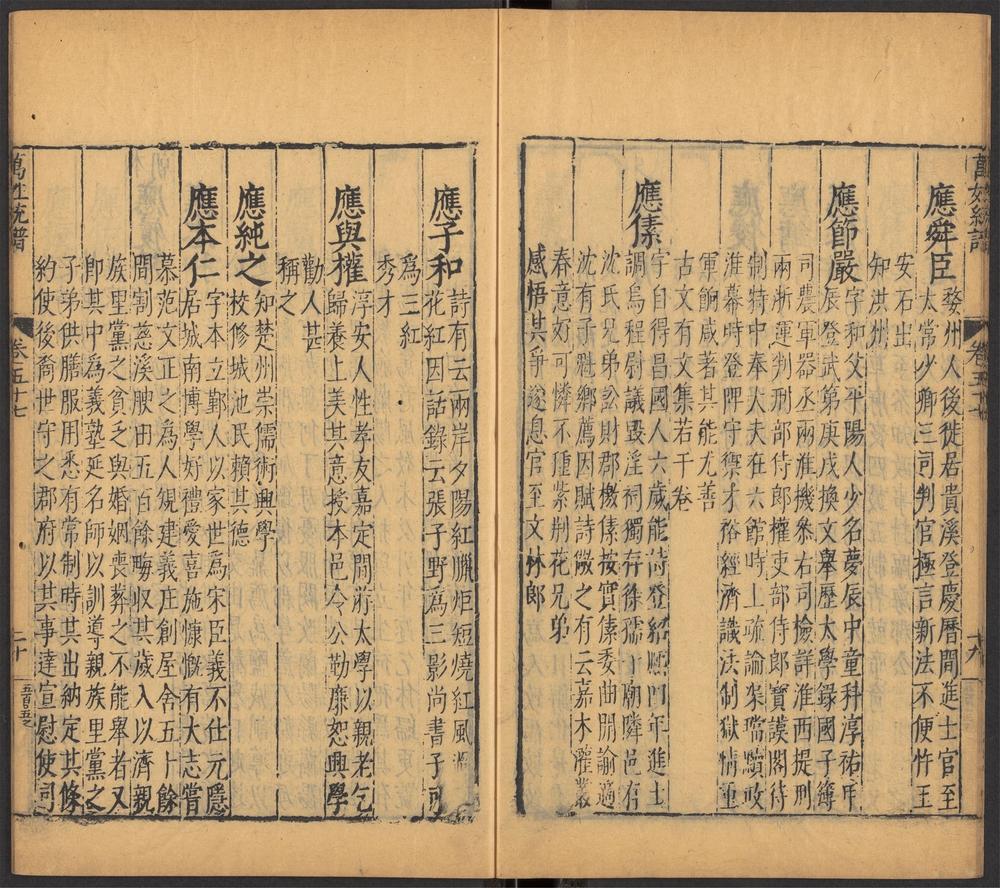 應舜臣
婺州人後徙居貴溪登慶曆間進士官至
太常少卿三司判官極言新法不便忤王
安石出
知洪州
應節嚴
字和父平陽人少名夢辰中童科淳祐甲
辰登武第庚戌換文舉歷太學錄國子簿
司農軍器丞兩淮機叅右司檢詳淮西提刑
兩浙運判刑部侍郎權吏部侍郎寶謨閣待
制特中奉大夫在六館時上疏論 政
淮幕時登陴守禦才裕經濟讞法制獄情重
軍餉咸著其能尤善
古文有文集若干卷
應傃
字自得昌國人六歲能詩登紹 年進士
調烏程尉議毀淫祠獨存徐孺 廟隣邑有
沈氏兄弟訟財郡檄傃按實傃委曲開諭適
沈有子 鄉薦因賦詩 之有云嘉木灌叢
春意好可憐不種紫荆花兄弟
感悟其爭遂息官至文林郎
萬姓統譜
卷五十七
十九
應子和
詩有云兩岸夕陽紅臘炬短燒紅風 
花紅因話錄云張子野爲三影尚書子可
爲三紅
秀才
應與權
淳安人性孝友嘉定間游太學以親老乞
歸養上美其意授本邑令公勤廉恕興學
勸人甚
稱之
應純之
知楚州崇儒術興學
校修城池民賴其德
應本仁
字本立鄞人以家世爲宋臣義不仕元隱
居城南博學好禮愛喜施慷慨有大志嘗
慕范文正之爲人規建義庄創屋舍五十餘
間割慈溪腴田五百餘畮收其歲入以濟親
族里黨之貧乏與婚姻喪葬之不能舉者又
卽其中爲義塾延名師以訓導親族里黨之
子弟供膳服用悉有常制時其出納定其條
約使後裔世守之郡府以其事達宣慰使司
萬姓統譜
卷五十七
二十